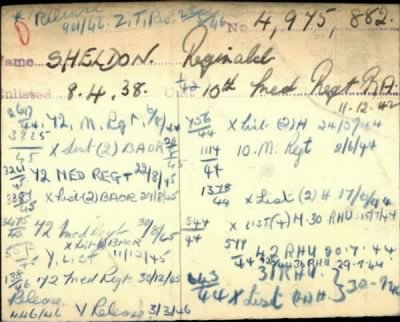 * Release
401/46. Z.T. Res. 46
No. 4,975,882.
Name SHELDON. Reginald
Enlisted 8.4.38. Unit 10th Med Regt RA.
11.12.42
2617/44 72, M. Rgt, 6/8/44
3225/45 X List (2) BAOR
3261/45 72 MED REGT 22/8/45
3387/45 X List (2) BAOR 29/8/45
3475/45 72 Med REGT 30/8/45
X List BAOR
Y, LIST 11/12/45
138/46 72 Med Regt 30/12/45
Release
446/46 Y Release 3/3/46
456/44 X List (2) H 24/5/44
1114/44 10. M. Rgt 8/6/44
1378/44 X List (2) H 17/6/44
544/44 X LIST (4) N.30 RHU 15/7/44
544/44 42 RHU 20.7.44
36 RHU 29.7.44
31 RHU.
643/44 X List (2) H. } 30.7.44